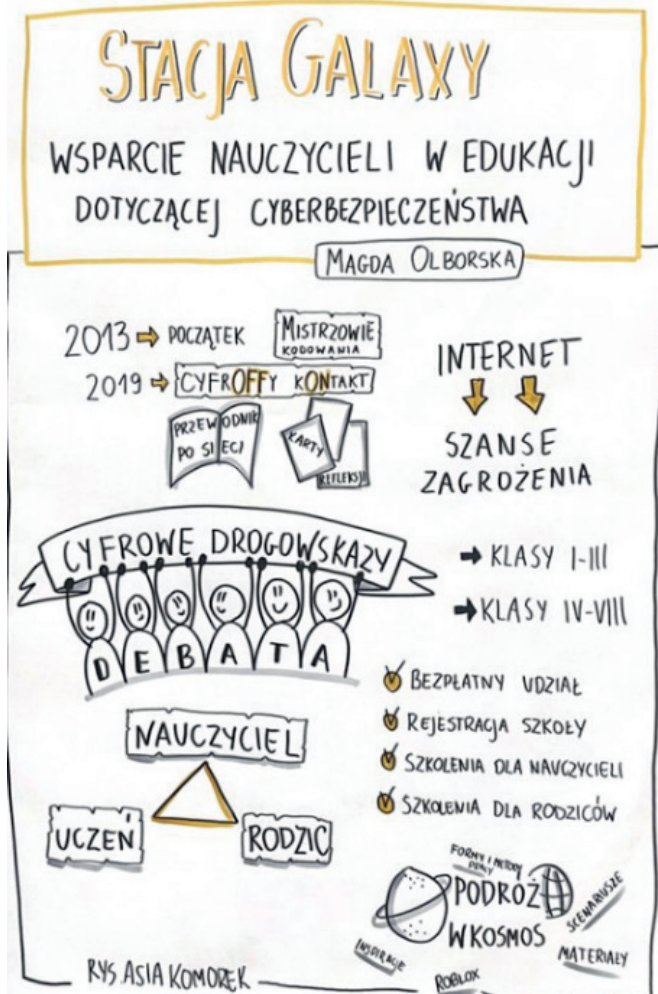 STACJA GALAXY
WSPARCIE NAUCZYCIELI W EDUKACJI
DOTYCZĄCEJ CYBERBEZPIECZEŃSTWA
MAGDA OLBORSKA
2013 → POCZĄTEK
MISTRZOWIE
KODOWANIA
2019 → CYFROFFY KONTAKT
PRZEWODNIK
PO SIECI
KARTY
REFLEKSJI
INTERNET
SZANSE
ZAGROŻENIA
CYFROWE DROGOWSKAZY
DEBATA
→ KLASY I-III
→ KLASY IV-VIII
BEZPŁATNY UDZIAŁ
REJESTRACJA SZKOŁY
SZKOLENIA DLA NAUCZYCIELI
SZKOLENIA DLA RODZICÓW
NAUCZYCIEL
UCZEŃ
RODZIC
FORMY I METODY
PRACY
PODRÓŻ
W KOSMOS
SCENARIUSZE
MATERIAŁY
INSPIRACJE
ROBLOX
RYS. ASIA KOMOREK